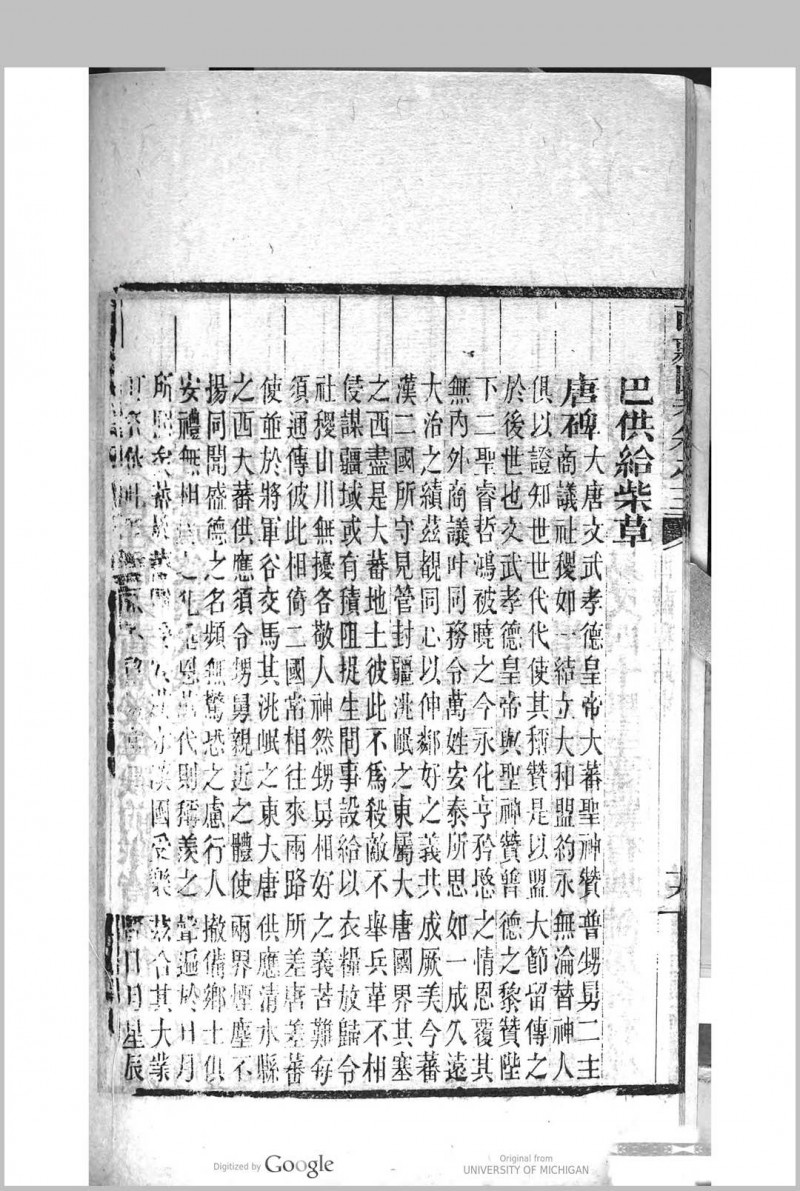 巴供給柴草
唐碑大唐文武孝德皇帝大蕃聖神贊普甥舅二主
商議社稷如一結立大和盟約永無淪替神人
俱以證知世世代代使其稱贊是以盟大節留傳之
於後世也文武孝德皇帝與聖神贊普德之黎贊陛
下二聖睿哲鴻被曉之今永化亨矜愍之情恩覆其
無內外商議叶同務令萬姓安泰所思如一成久遠
大治之績茲觀同心以伸鄰好之義共成厥美今蕃
漢二國所守見管封疆洮岷之東屬大唐國界其塞
之西盡是大蕃地土彼此不爲殺敵不舉兵革不相
侵謀疆域或有積阻捉生問事設給以衣糧放歸令
社稷山川無擾各敬人神然甥舅相好之義苦難每
須通傳彼此相倚二國常相往來兩路所差唐差蕃
使並於將軍谷交馬其洮岷之東大唐供應清水縣
之西大蕃供應須令甥舅親近之體使兩界煙塵不
揚同聞盛德之名頻無驚恐之慮行人撤備鄉土俱
安禮無相之化恩代則稱羨之聲遍於日月
所矣蕃國受樂茲合其大業
日月星辰
Digitized by Google
Original from
UNIVERSITY OF MICHIGAN